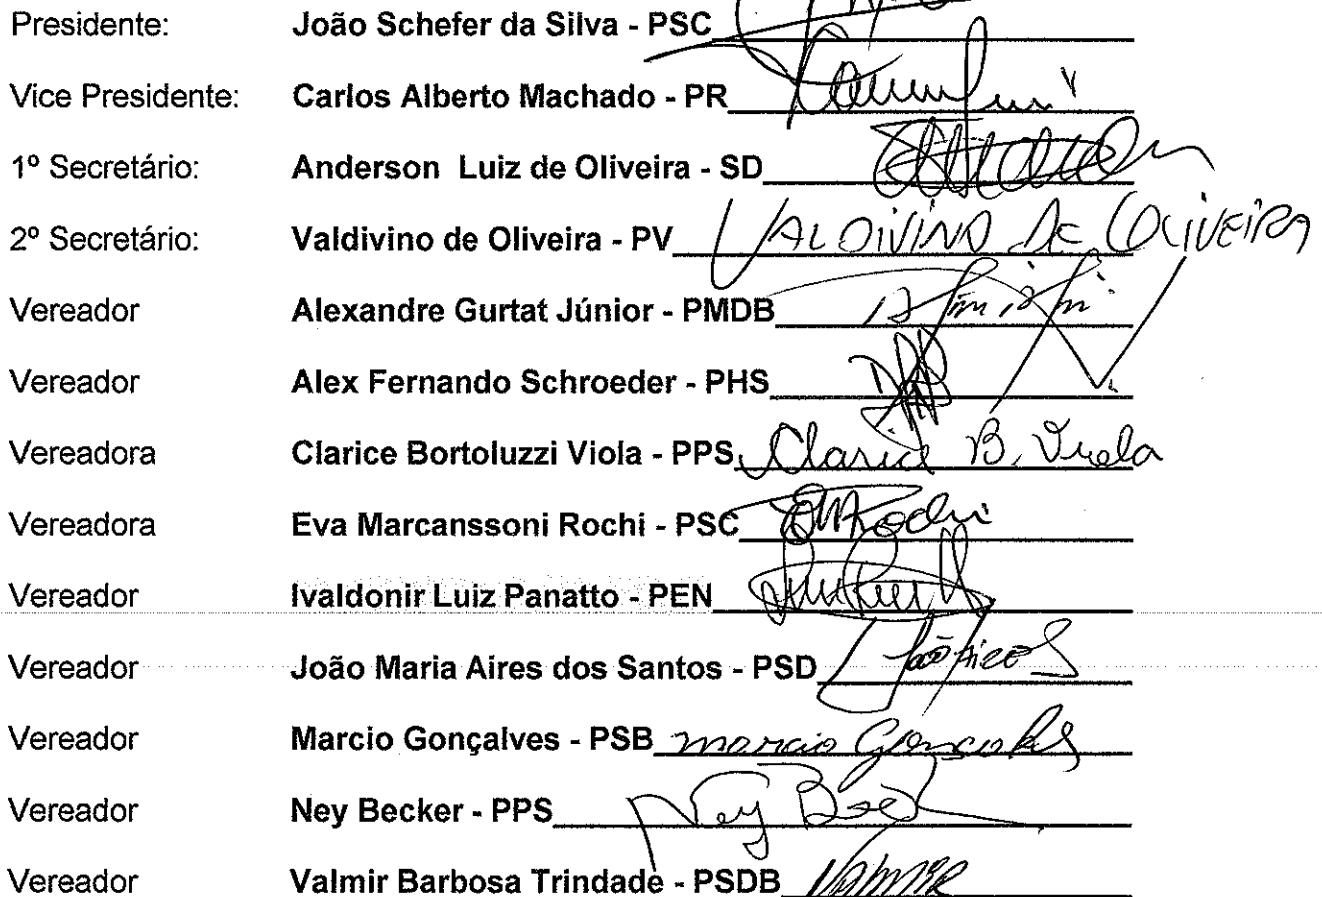 Presidente: João Schefer da Silva - PSC
Vice Presidente: Carlos Alberto Machado - PR
1º Secretário: Anderson Luiz de Oliveira - SD
2º Secretário: Valdivino de Oliveira - PV VALDIVINO DE OLIVEIRA
Vereador Alexandre Gurtat Júnior - PMDB
Vereador Alex Fernando Schroeder - PHS
Vereadora Clarice Bortoluzzi Viola - PPS Clarice B. Viola
Vereadora Eva Marcanssoni Rochi - PSC EMRochi
Vereador Ivaldonir Luiz Panatto - PEN
Vereador João Maria Aires dos Santos - PSD
Vereador Marcio Gonçalves - PSB marcio Gonçalves
Vereador Ney Becker - PPS Ney
Vereador Valmir Barbosa Trindade - PSDB VALMIR